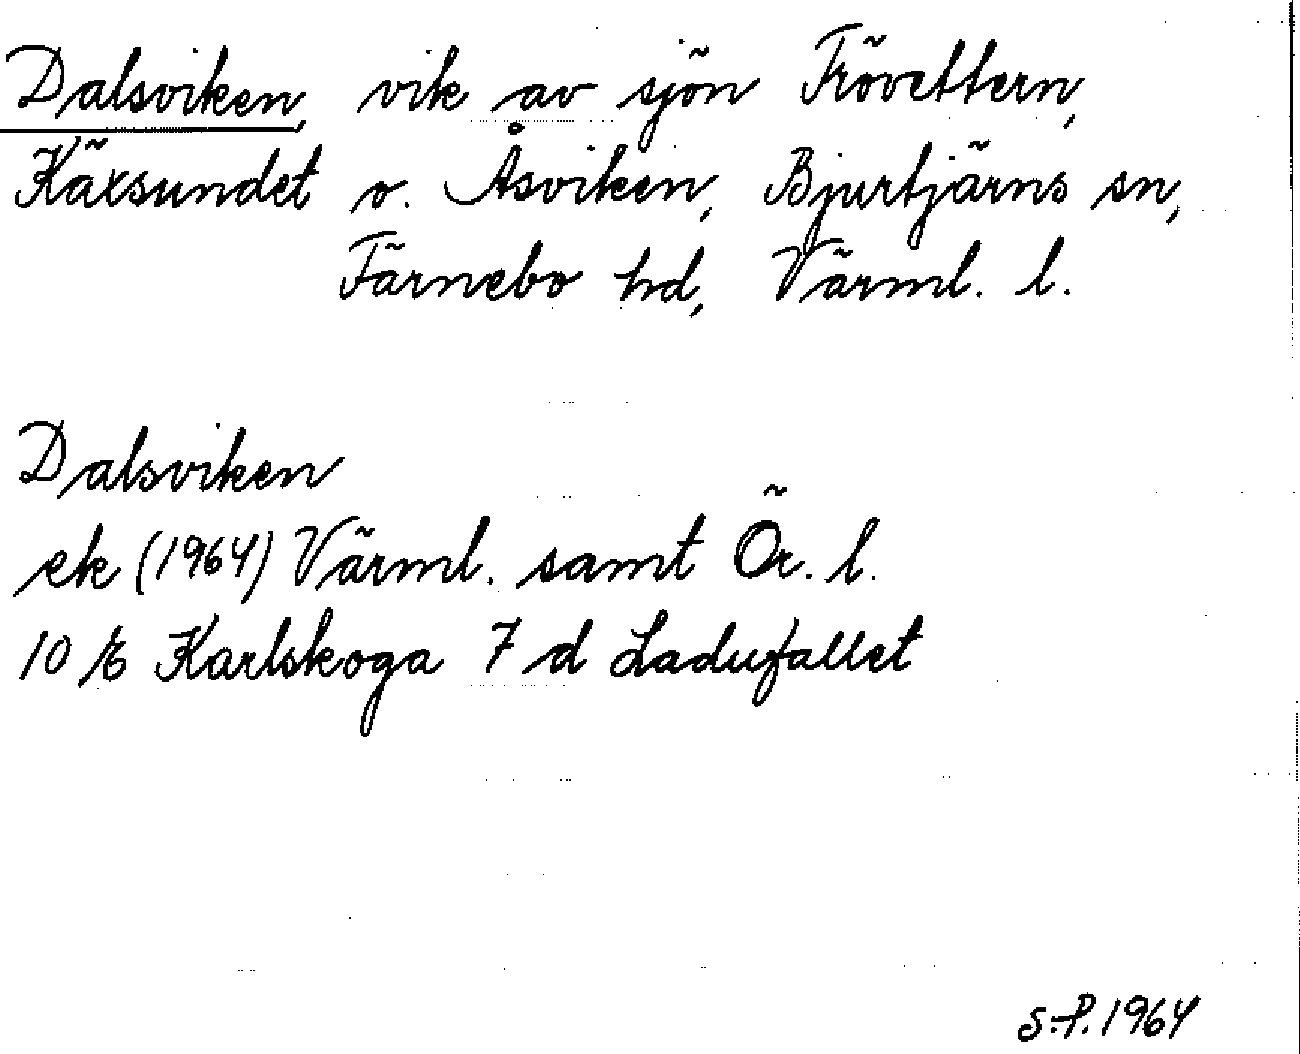 Dalsviken, vik av sjön Frövettern,
Käxsundet o. Åsviken, Bjurtjärns sn,
Färnebo hd, Värml. l.
Dalsviken
ek (1964) Värml. samt Ör. l.
10 E Karlskoga 7 d Ladufallet
S.-P. 1964